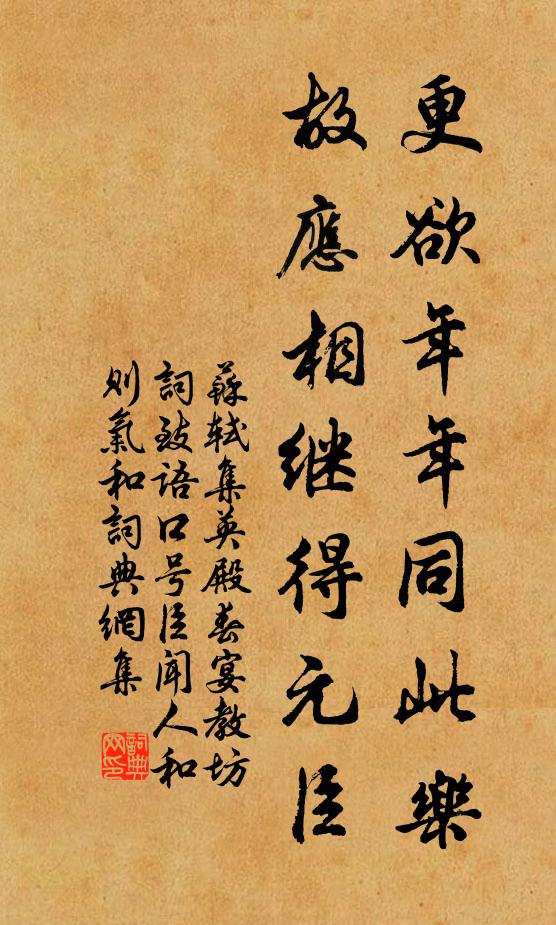 更欲年年同此樂
故應相继得元臣
蘇軾集英殿春宴教坊
詞致語口号臣聞人和
则氣和詞典網集
詞典网印